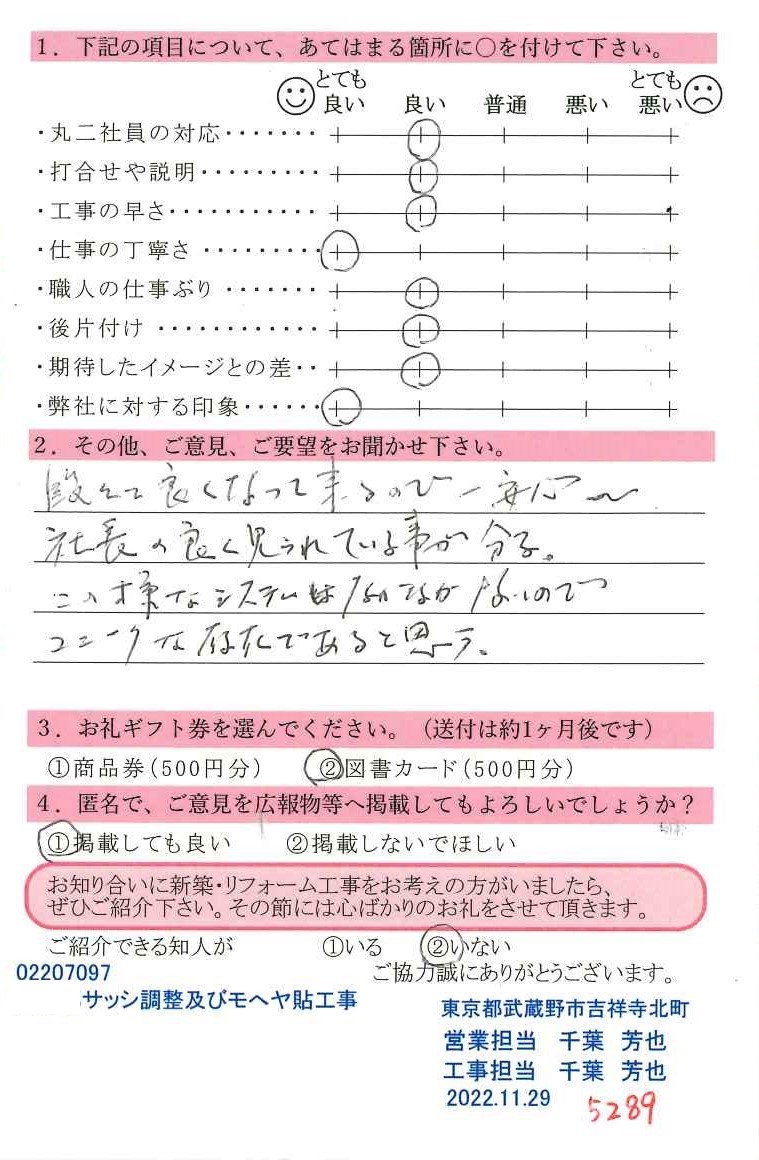 1. 下記の項目について、あてはまる箇所に○を付けて下さい。
とても良い 良い 普通 悪い とても悪い
・丸二社員の対応・・・・・・・
・打合せや説明・・・・・・・・・
・工事の早さ・・・・・・・・・・・
・仕事の丁寧さ・・・・・・・・・
・職人の仕事ぶり・・・・・・・
・後片付け・・・・・・・・・・・・
・期待したイメージとの差・・
・弊社に対する印象・・・・・・
2. その他、ご意見、ご要望をお聞かせ下さい。
段々と良くなって来るので一安心〜
社長の良く見られている事が分る。
この様なシステムはなかなかないので
ユニークな存在であると思う。
3. お礼ギフト券を選んでください。(送付は約1ヶ月後です)
①商品券(500円分) ②図書カード(500円分)
4. 匿名で、ご意見を広報物等へ掲載してもよろしいでしょうか?
①掲載しても良い ②掲載しないでほしい
お知り合いに新築・リフォーム工事をお考えの方がいましたら、
ぜひご紹介下さい。その節には心ばかりのお礼をさせて頂きます。
ご紹介できる知人が ①いる ②いない
02207097 ご協力誠にありがとうございます。
サッシ調整及びモヘヤ貼工事
東京都武蔵野市吉祥寺北町
営業担当 千葉 芳也
工事担当 千葉 芳也
2022.11.29
5289